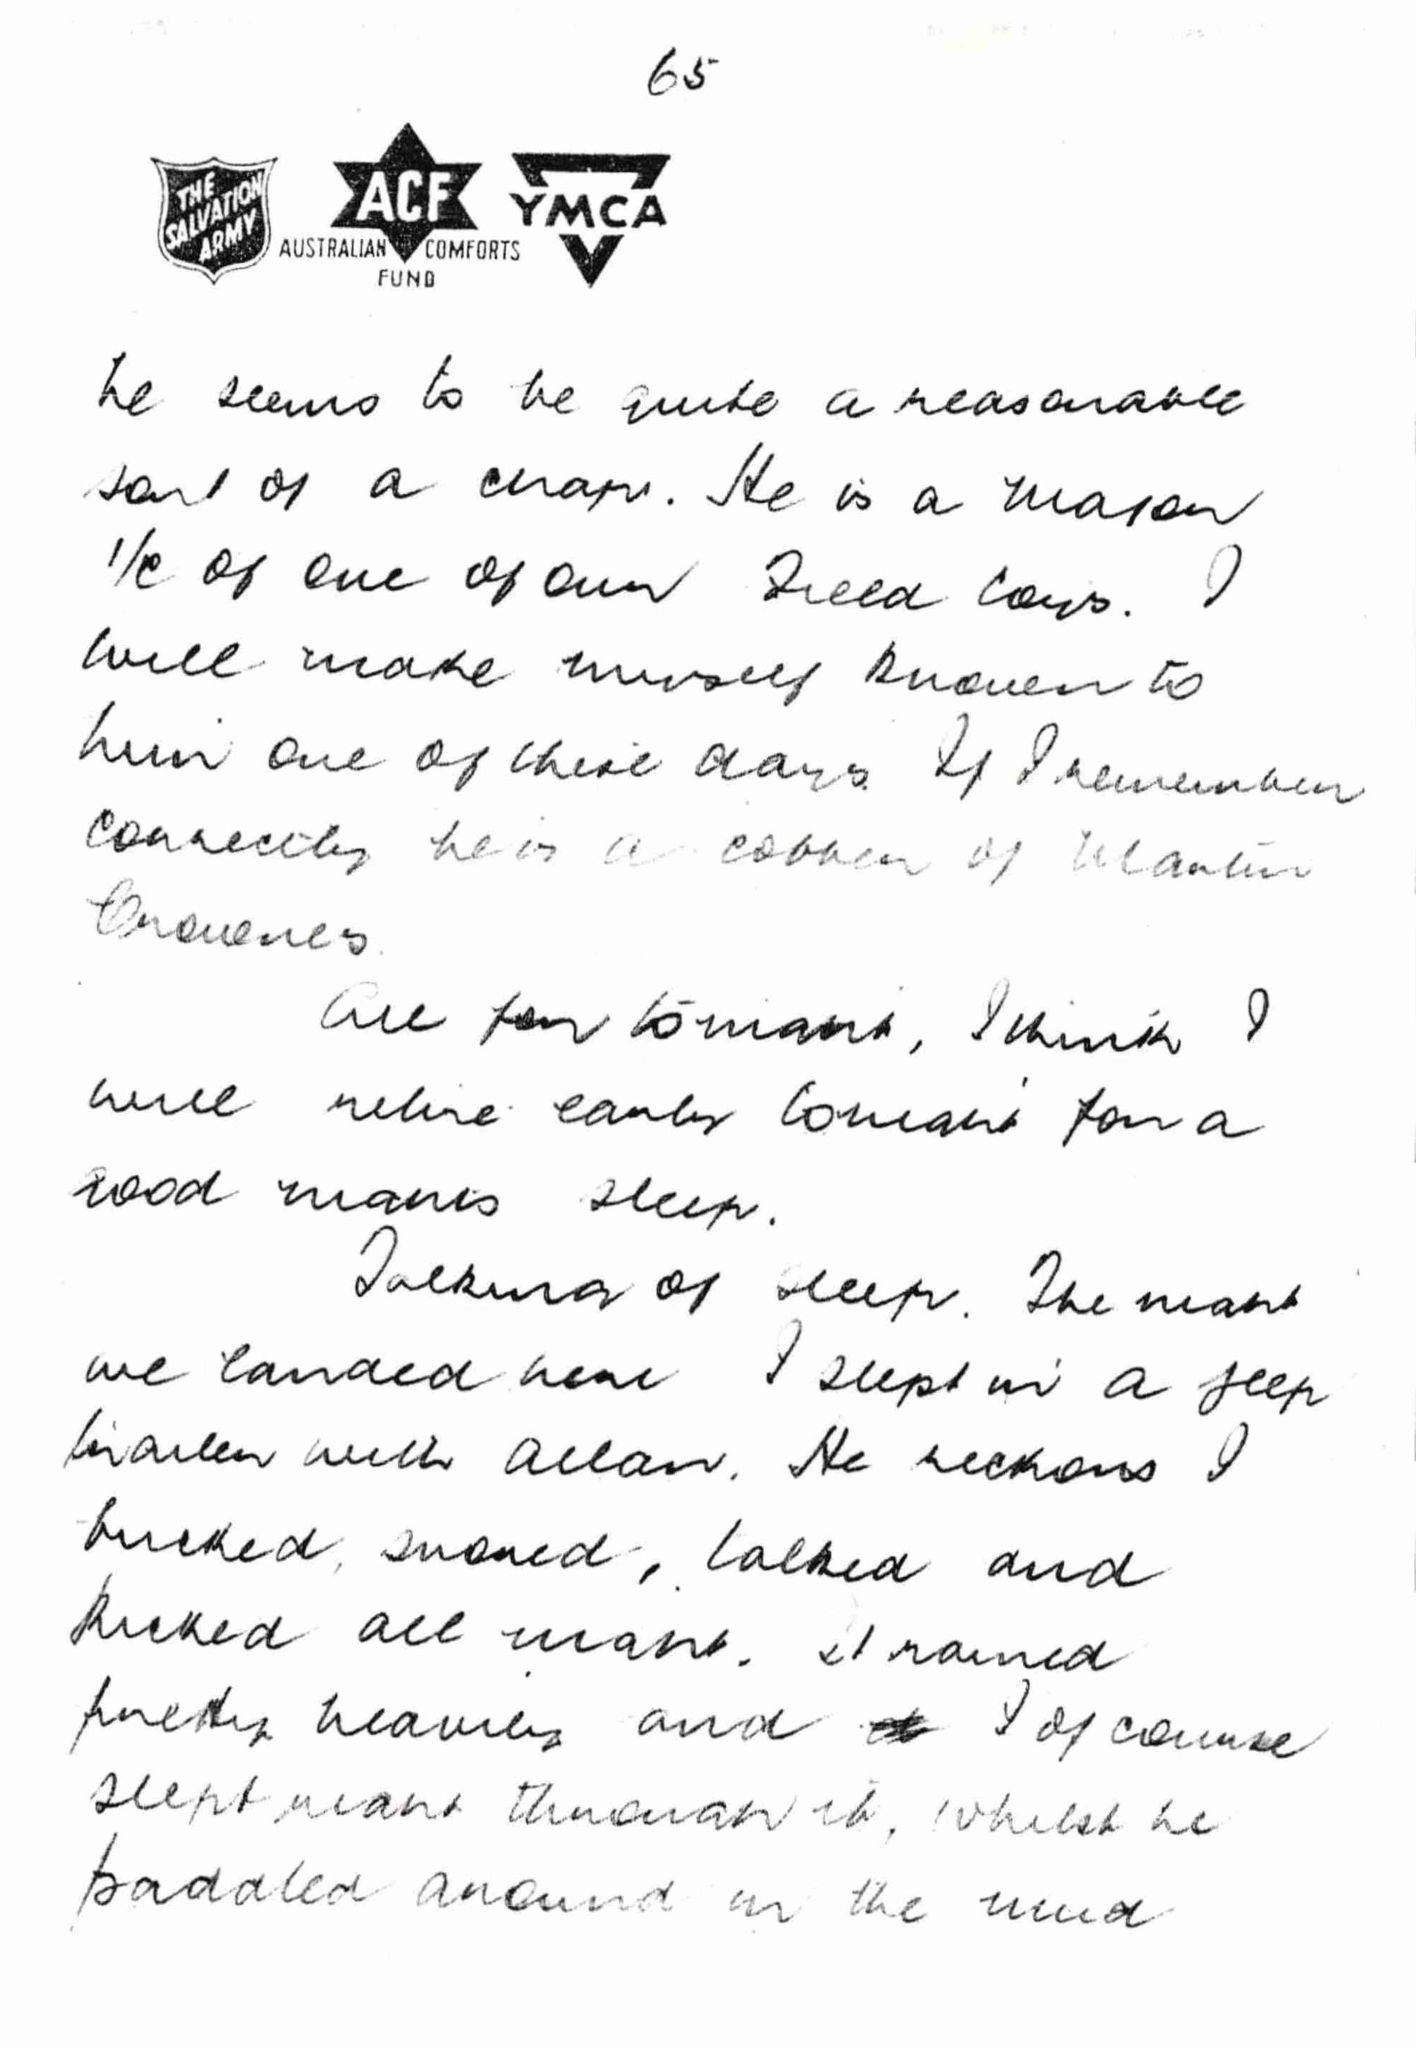 65
THE
SALVATION
ARMY
ACF
AUSTRALIAN COMFORTS
FUND
YMCA
he seems to be quite a reasonable
sort of a chap. He is a Major
I/C of one of our Field Coys. I
will make myself known to
him one of these days. If I remember
correctly he is a cobber of Martin
All for tonight, I think I
will retire early tonight for a
good nights sleep.
Talking of sleep. The night
we landed here I slept in a jeep
trailer with Allan. He reckons I
bucked, snored, talked and
kicked all night. It rained
pretty heavily and I of course
slept right through it, whilst he
paddled around in the mud